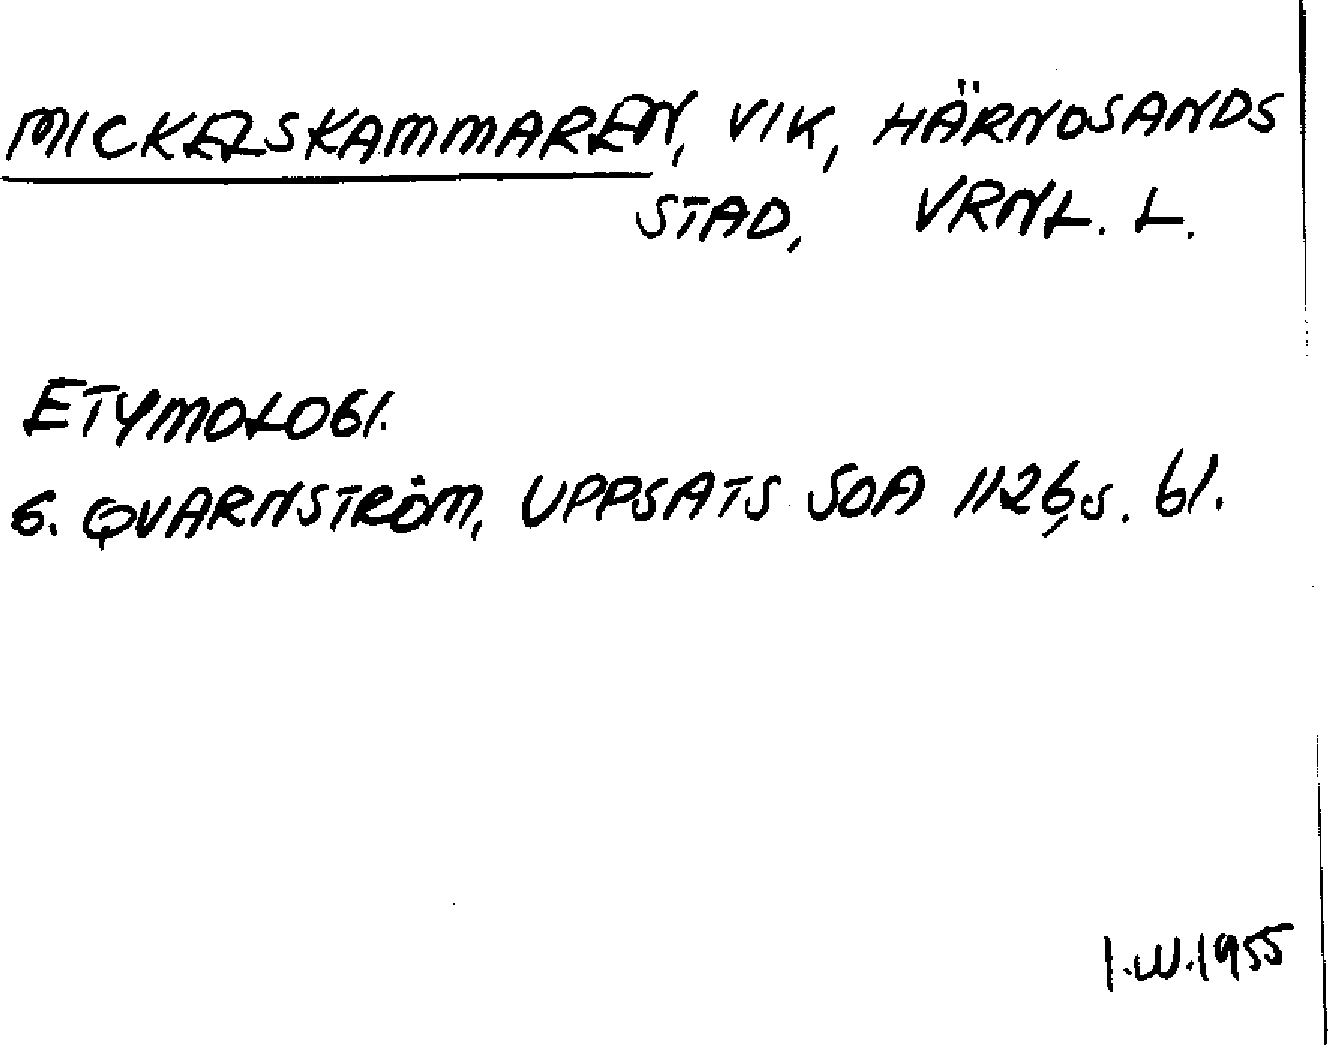 MICKELSKAMMAREN, VIK, HÄRNOSANDS
STAD, VRNL. L.
ETYMOLOGI.
G. QVARNSTRÖM, UPPSATS SOA 1126, s. 61.
I.W.1955